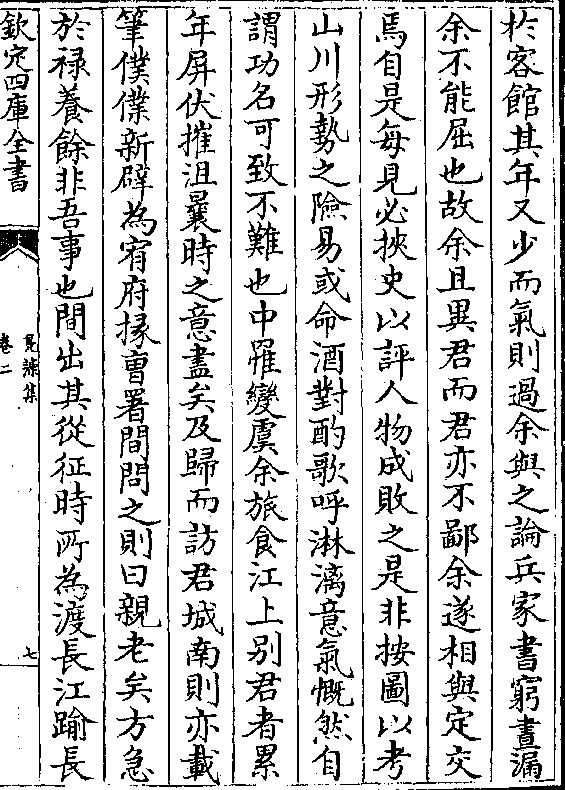 於客館其年又少而氣則過余與之論兵家書窮晝漏
余不能屈也故余且異君而君亦不鄙余遂相與定交
焉自是每見必挾史以評人物成敗之是非按圖以考
山川形勢之險易或命酒對酌歌呼淋漓意氣慨然自
謂功名可致不難也中罹變虞余旅食江上别君者累
年屏伏摧沮曩時之意盡矣及歸而訪君城南則亦載
筆僕僕新辟為宥府掾曹署間問之則曰親老矣方急
於禄養餘非吾事也間出其從征時所為渡長江踰長
欽定四庫全書
鳧藻集
卷二
七